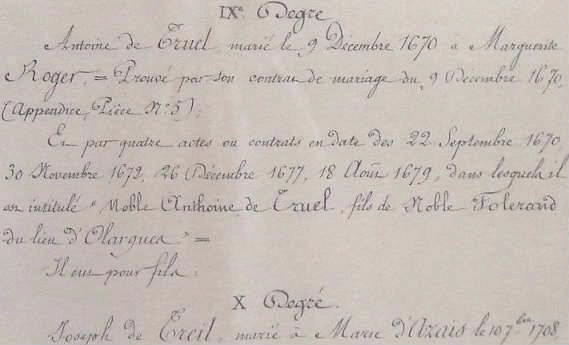 IXe Degré
Antoine de Truel marié le 9 Décembre 1670 à Marguerite
Roger, = Prouvé par son contrat de mariage du 9 Décembre 1670,
(Appendice, Pièce No 5);
Et par quatre actes ou contrats en date des 22 Septembre 1670,
30 Novembre 1672, 26 Décembre 1677, 18 Août 1679, dans lesquels il
est intitulé "Noble Anthoine de Truel, fils de Noble Tolerand
du lieu d'Olargues" =
Il eut pour fils:
X Degré.
Joseph de Treil, marié à Marie d'Azais le 10 7bre 1708,